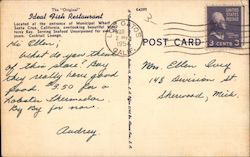 The "Original"
Ideal Fish Restaurant
Located at the entrance of Municipal Wharf at
Santa Cruz, California, overlooking beautiful Monterey Bay. Serving Seafood Unsurpassed for
Cocktail Lounge.
POST CARD
Hi Ellen,
What do you think
of this place? Boy
they really have good
food. $2.50 for a
Lobster Thermador.
By By for now.
Audrey
Mrs. Ellen Guy
143 Division St
Sherwood, Mich.